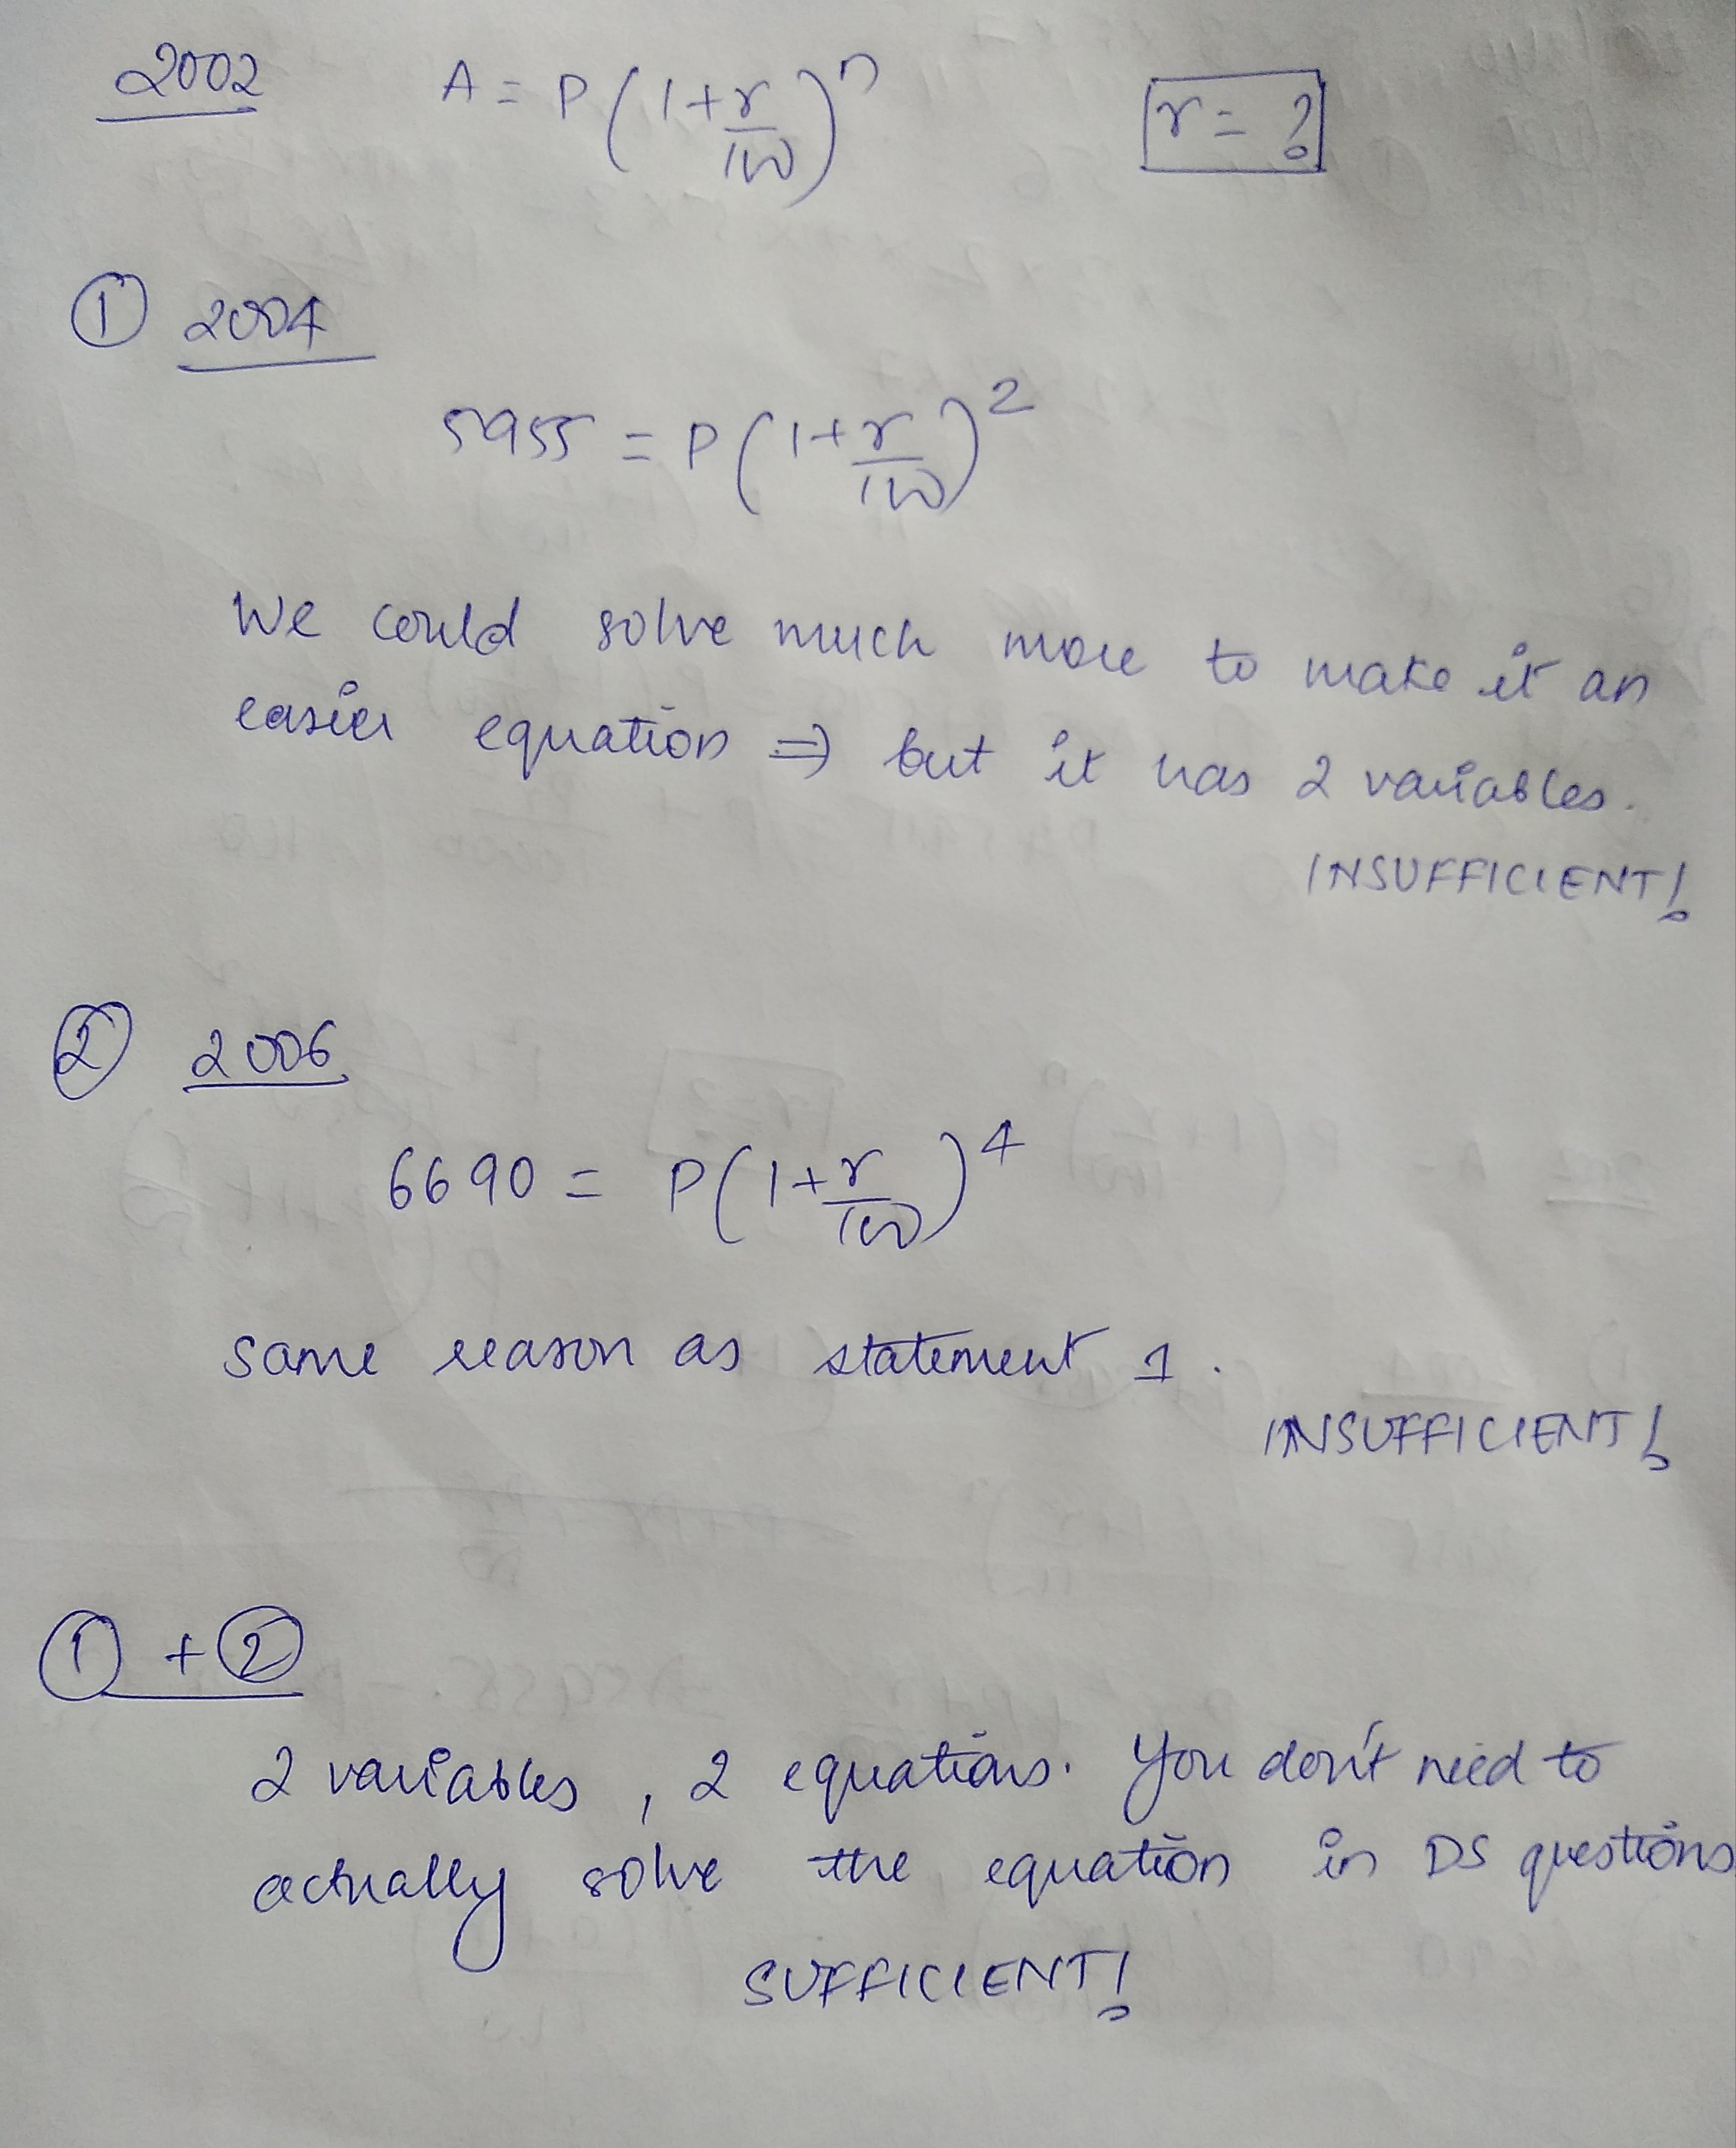 2002 A = P(1+r/100)^n r = ?
① 2004
5955 = P(1+r/100)^2
We could solve much more to make it an
easier equation ⇒ but it has 2 variables.
INSUFFICIENT!
② 2006
6690 = P(1+r/100)^4
same reason as statement 1.
INSUFFICIENT!
① + ②
2 variables, 2 equations. You don't need to
actually solve the equation in DS questions
SUFFICIENT!